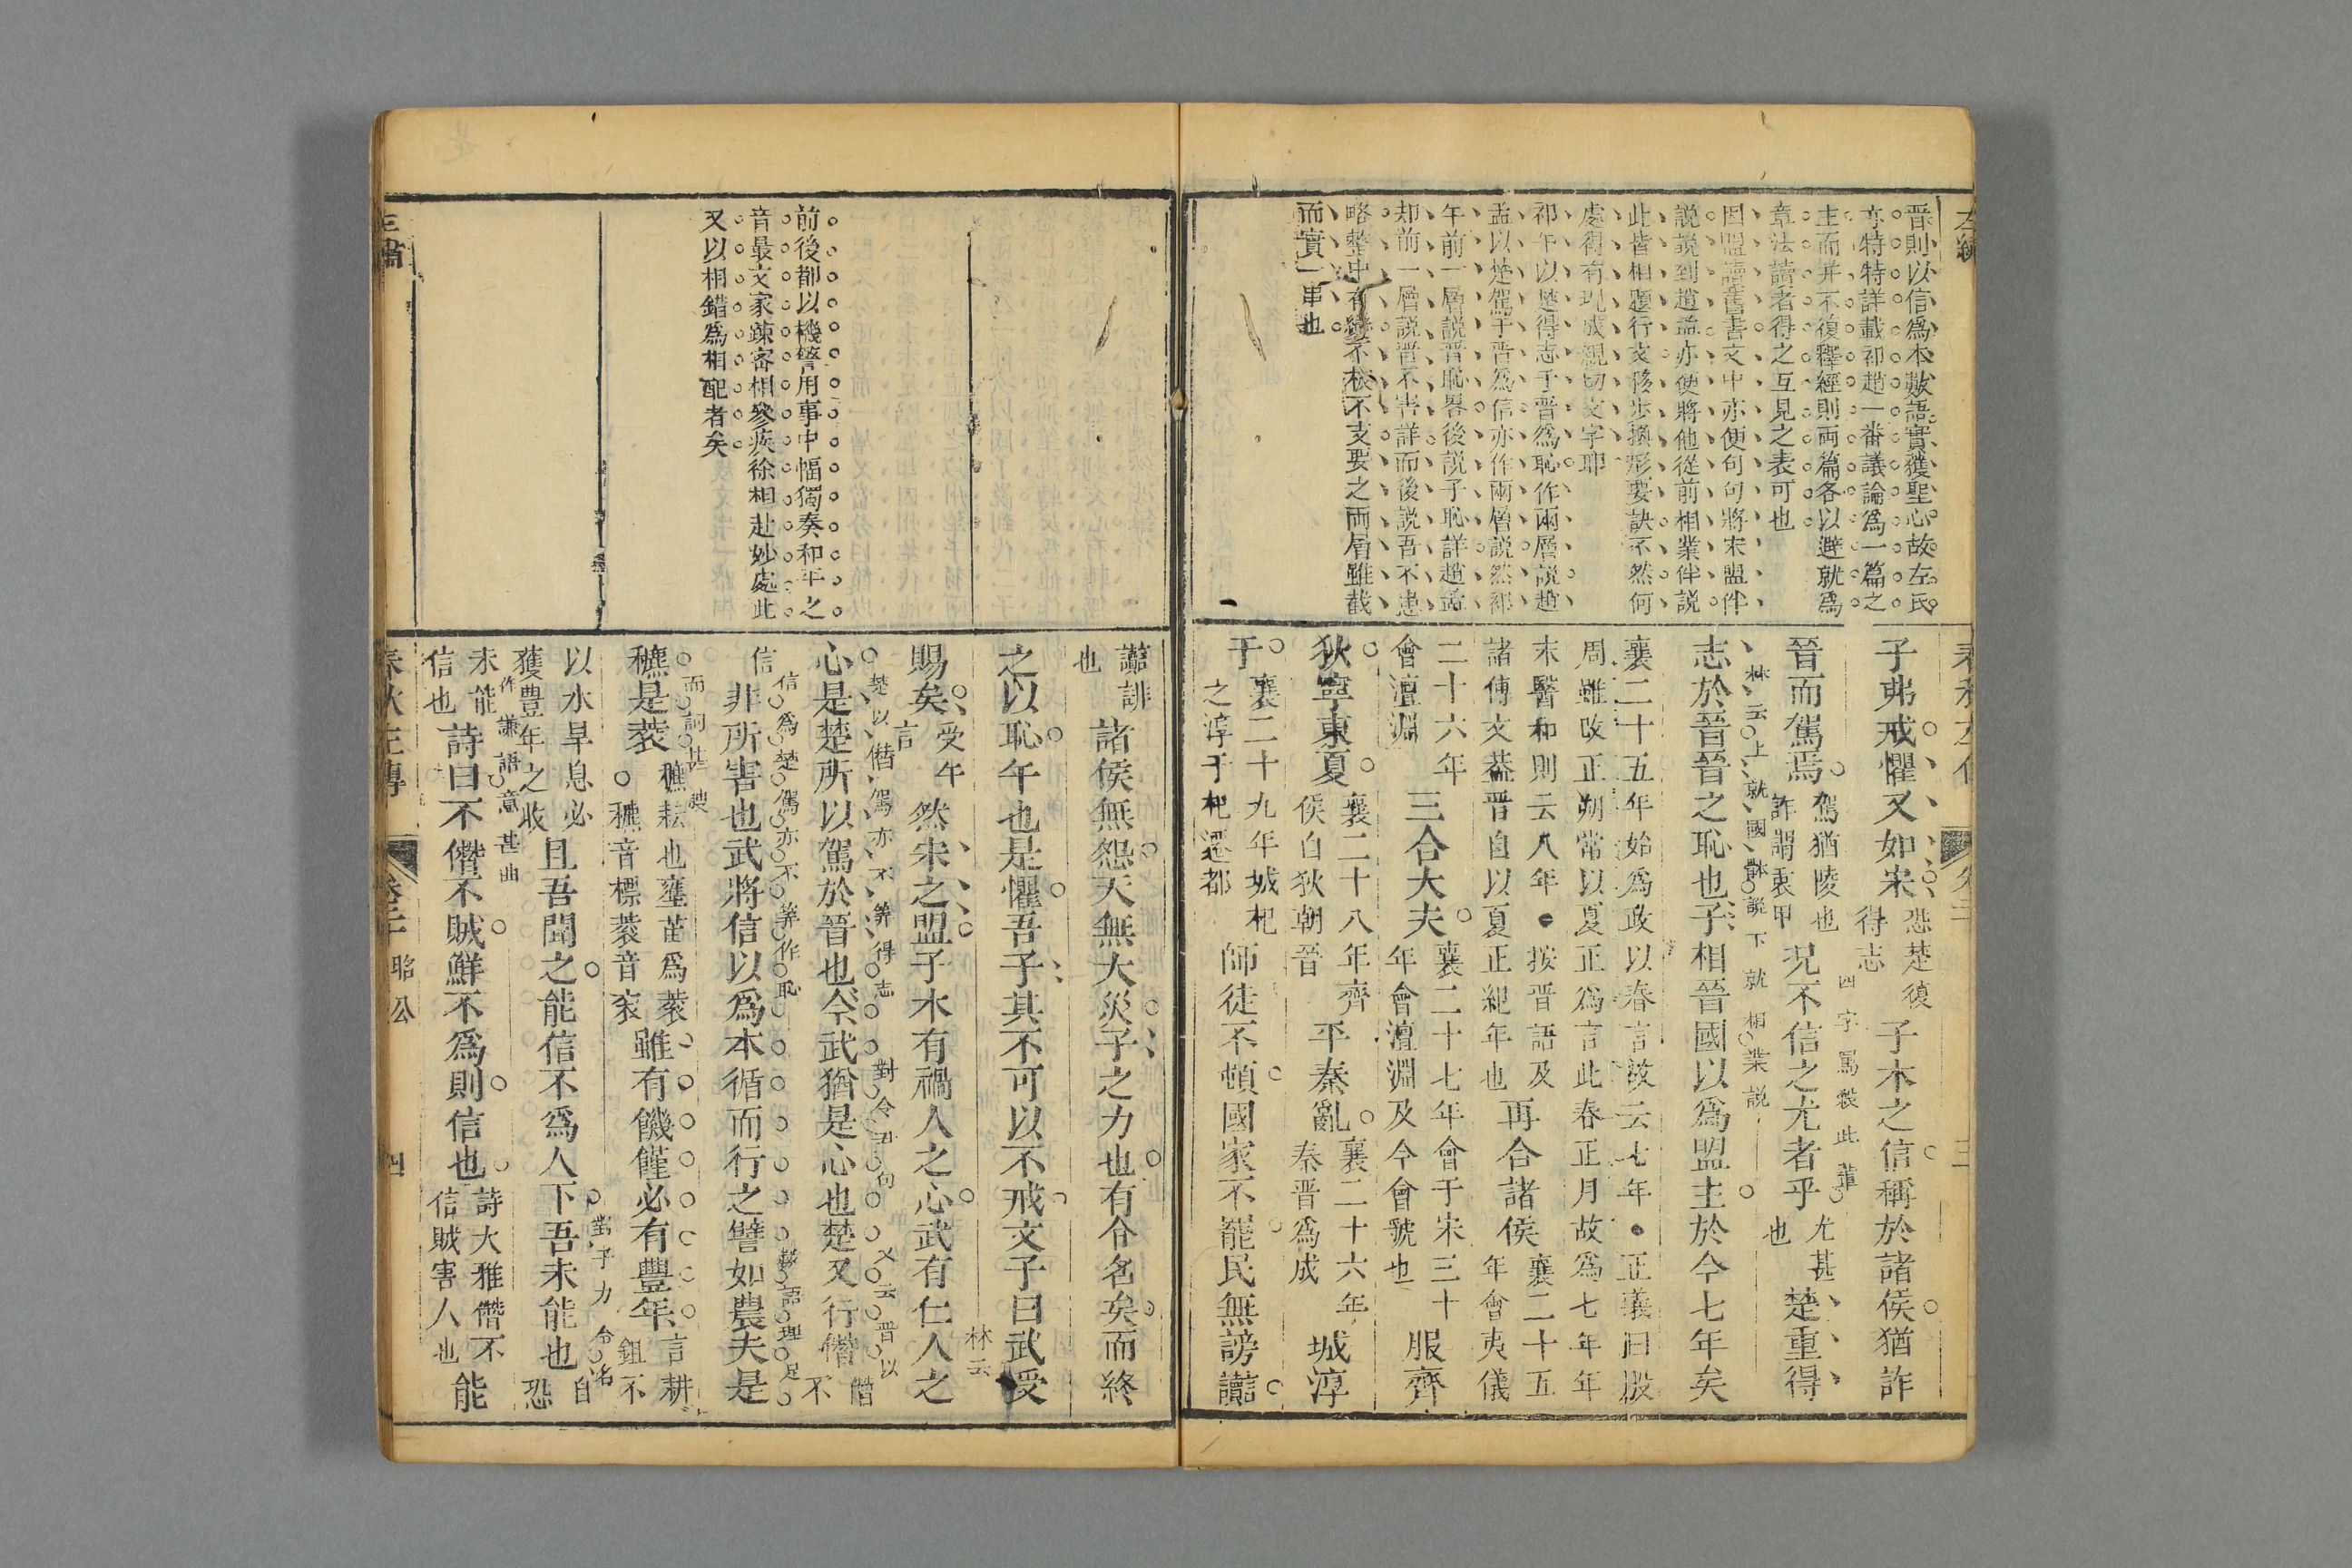 晋則以信爲本數語實獲聖心故左氏
亦特特詳載祁趙一番議論爲一篇之
主而并不復釋經則兩篇各以避就爲
章法讀者得之互見之表可也
因盟讀舊書文中亦便句句將宋盟伴
説説到趙孟亦便將他從前相業伴説
此皆相題行文移步換形要訣不然何
處得有現成親切文字耶
祁午以楚得志于晋爲恥作兩層説趙
孟以楚駕于晋爲信亦作兩層説然祁
午前一層説晋恥畧後説子恥詳趙孟
却前一層説晋不害詳而後説吾不患
略整中有變不板不支要之兩層雖截
而實一串也
子弗戒懼又如宋恐楚復得志子木之信稱於諸侯猶詐
四字駡殺此輩
晉而駕焉駕猶陵也詐謂衷甲況不信之尤者乎尤甚也楚重得
林云上就國體説下就相業説
志於晉晉之恥也子相晉國以爲盟主於今七年矣
襄二十五年始爲政以春言故云七年正義曰殷
周雖改正朔常以夏正爲言此春正月故爲七年年
末醫和則云八年按晉語及
諸傳文葢晉自以夏正紀年也再合諸侯襄二十五年會夷儀
二十六年會澶淵三合大夫襄二十七年會于宋三十年會澶淵及今會虢也服齊
狄寧東夏襄二十八年齊侯白狄朝晉平秦亂襄二十六年秦晋爲成城淳
于襄二十九年城杞之淳于杞遷都師徒不頓國家不罷民無謗讟
前後都以機警用事中幅獨奏和平之
音最文家疎密相參疾徐相赴妙處此
又以相錯爲相配者矣
讟誹也諸侯無怨天無大災子之力也有令名矣而終
之以恥午也是懼吾子其不可以不戒文子曰武受
林云
賜矣受午言然宋之盟子木有禍人之心武有仁人之
楚以僭駕亦不算得志對令尹句又云晋以
心是楚所以駕於晉也今武猶是心也楚又行僭僭不信
信爲楚駕亦不算作恥數語理足
非所害也武將信以爲本循而行之譬如農夫是
而詞甚
穮是蔉穮耘也壅苗爲蔉穮音標蔉音衮雖有饑饉必有豐年言耕鉏不
以水旱息必獲豐年之收且吾聞之能信不爲人下吾未能也自恐
對子力令名
作謙語意甚曲
未能信也詩曰不僭不賊鮮不爲則信也詩大雅僭不信賊害人也能
春秋左傳
卷二十
昭公
四